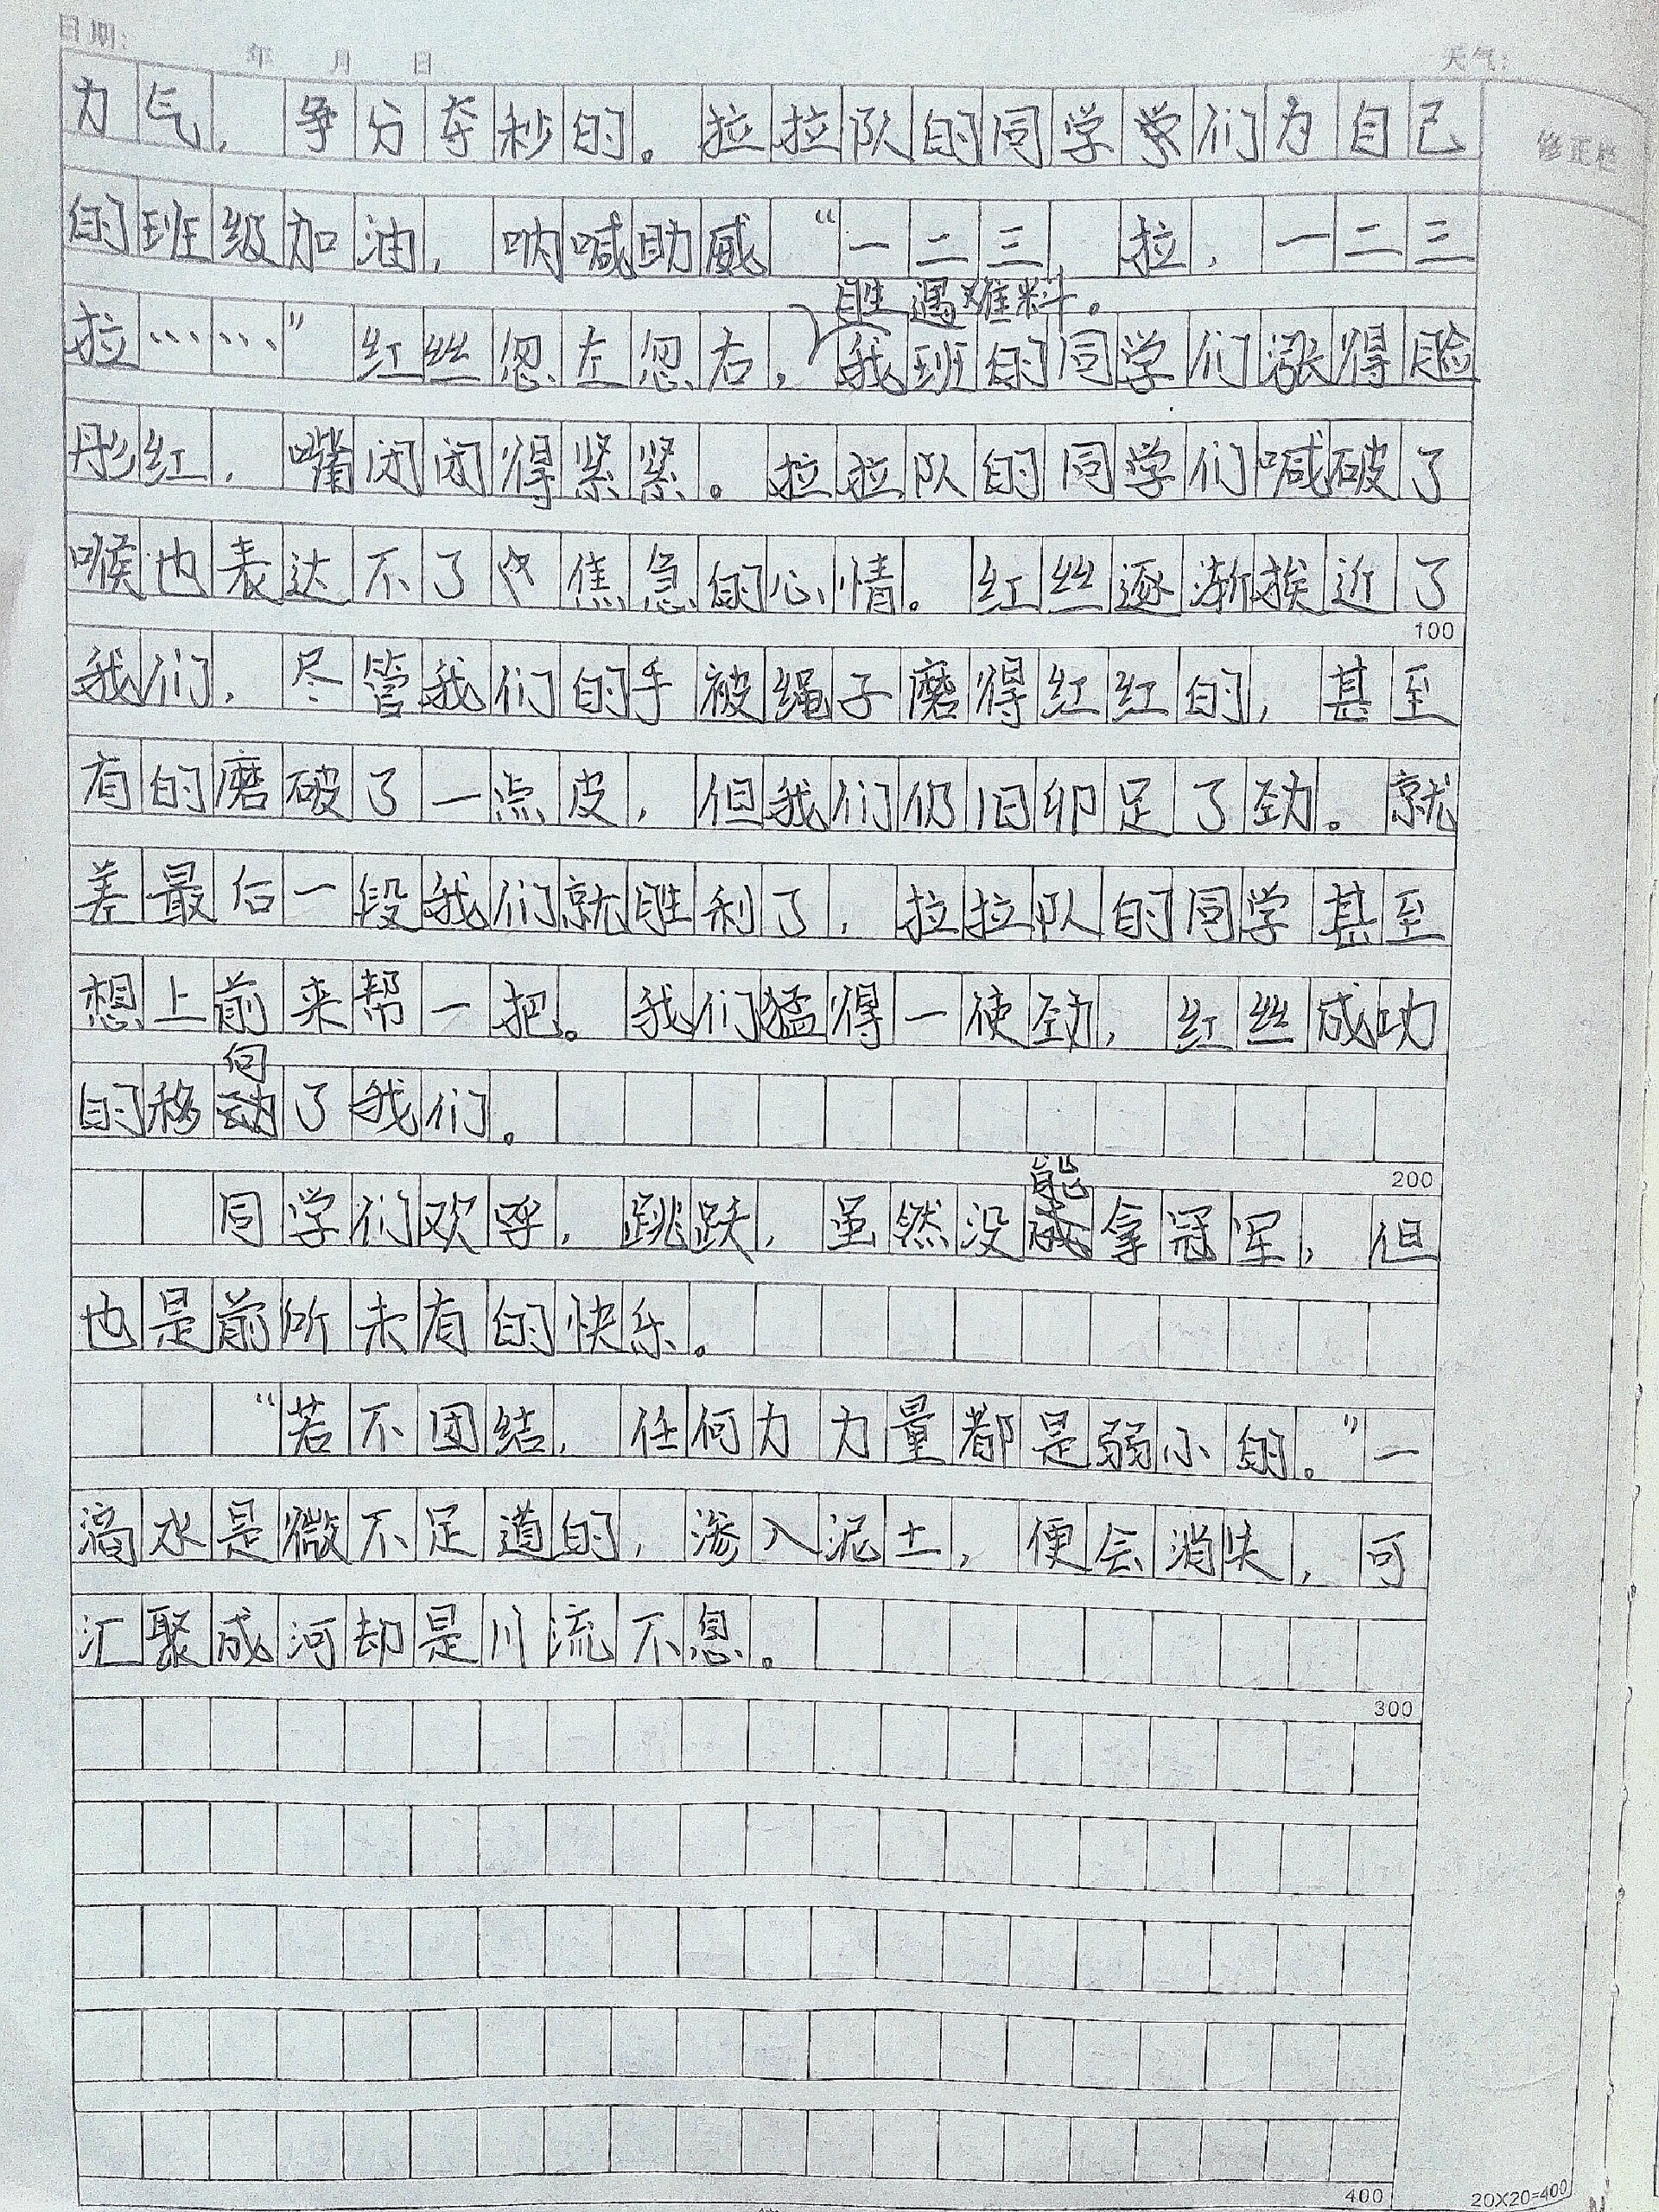 日期： 年 月 日 天气：
修正栏
力气，争分夺秒的。拉拉队的同学学们为自己
的班级加油，呐喊助威“一二三，拉，一二三
胜遇难料。
拉……”红丝忽左忽右，我班的同学们涨得脸
彤红，嘴闭闭得紧紧。拉拉队的同学们喊破了
喉也表达不了焦急的心情。红丝逐渐挨近了
100
我们，尽管我们的手被绳子磨得红红的，甚至
有的磨破了一点皮，但我们仍旧卯足了劲。就
差最后一段我们就胜利了，拉拉队的同学甚至
想上前来帮一把。我们猛得一使劲，红丝成功
向
的移动了我们。
200
能
同学们欢呼，跳跃，虽然没成拿冠军，但
也是前所未有的快乐。
“若不团结，任何力力量都是弱小的。”一
滴水是微不足道的，渗入泥土，便会消失，可
汇聚成河却是川流不息。
300
400
20X20=400